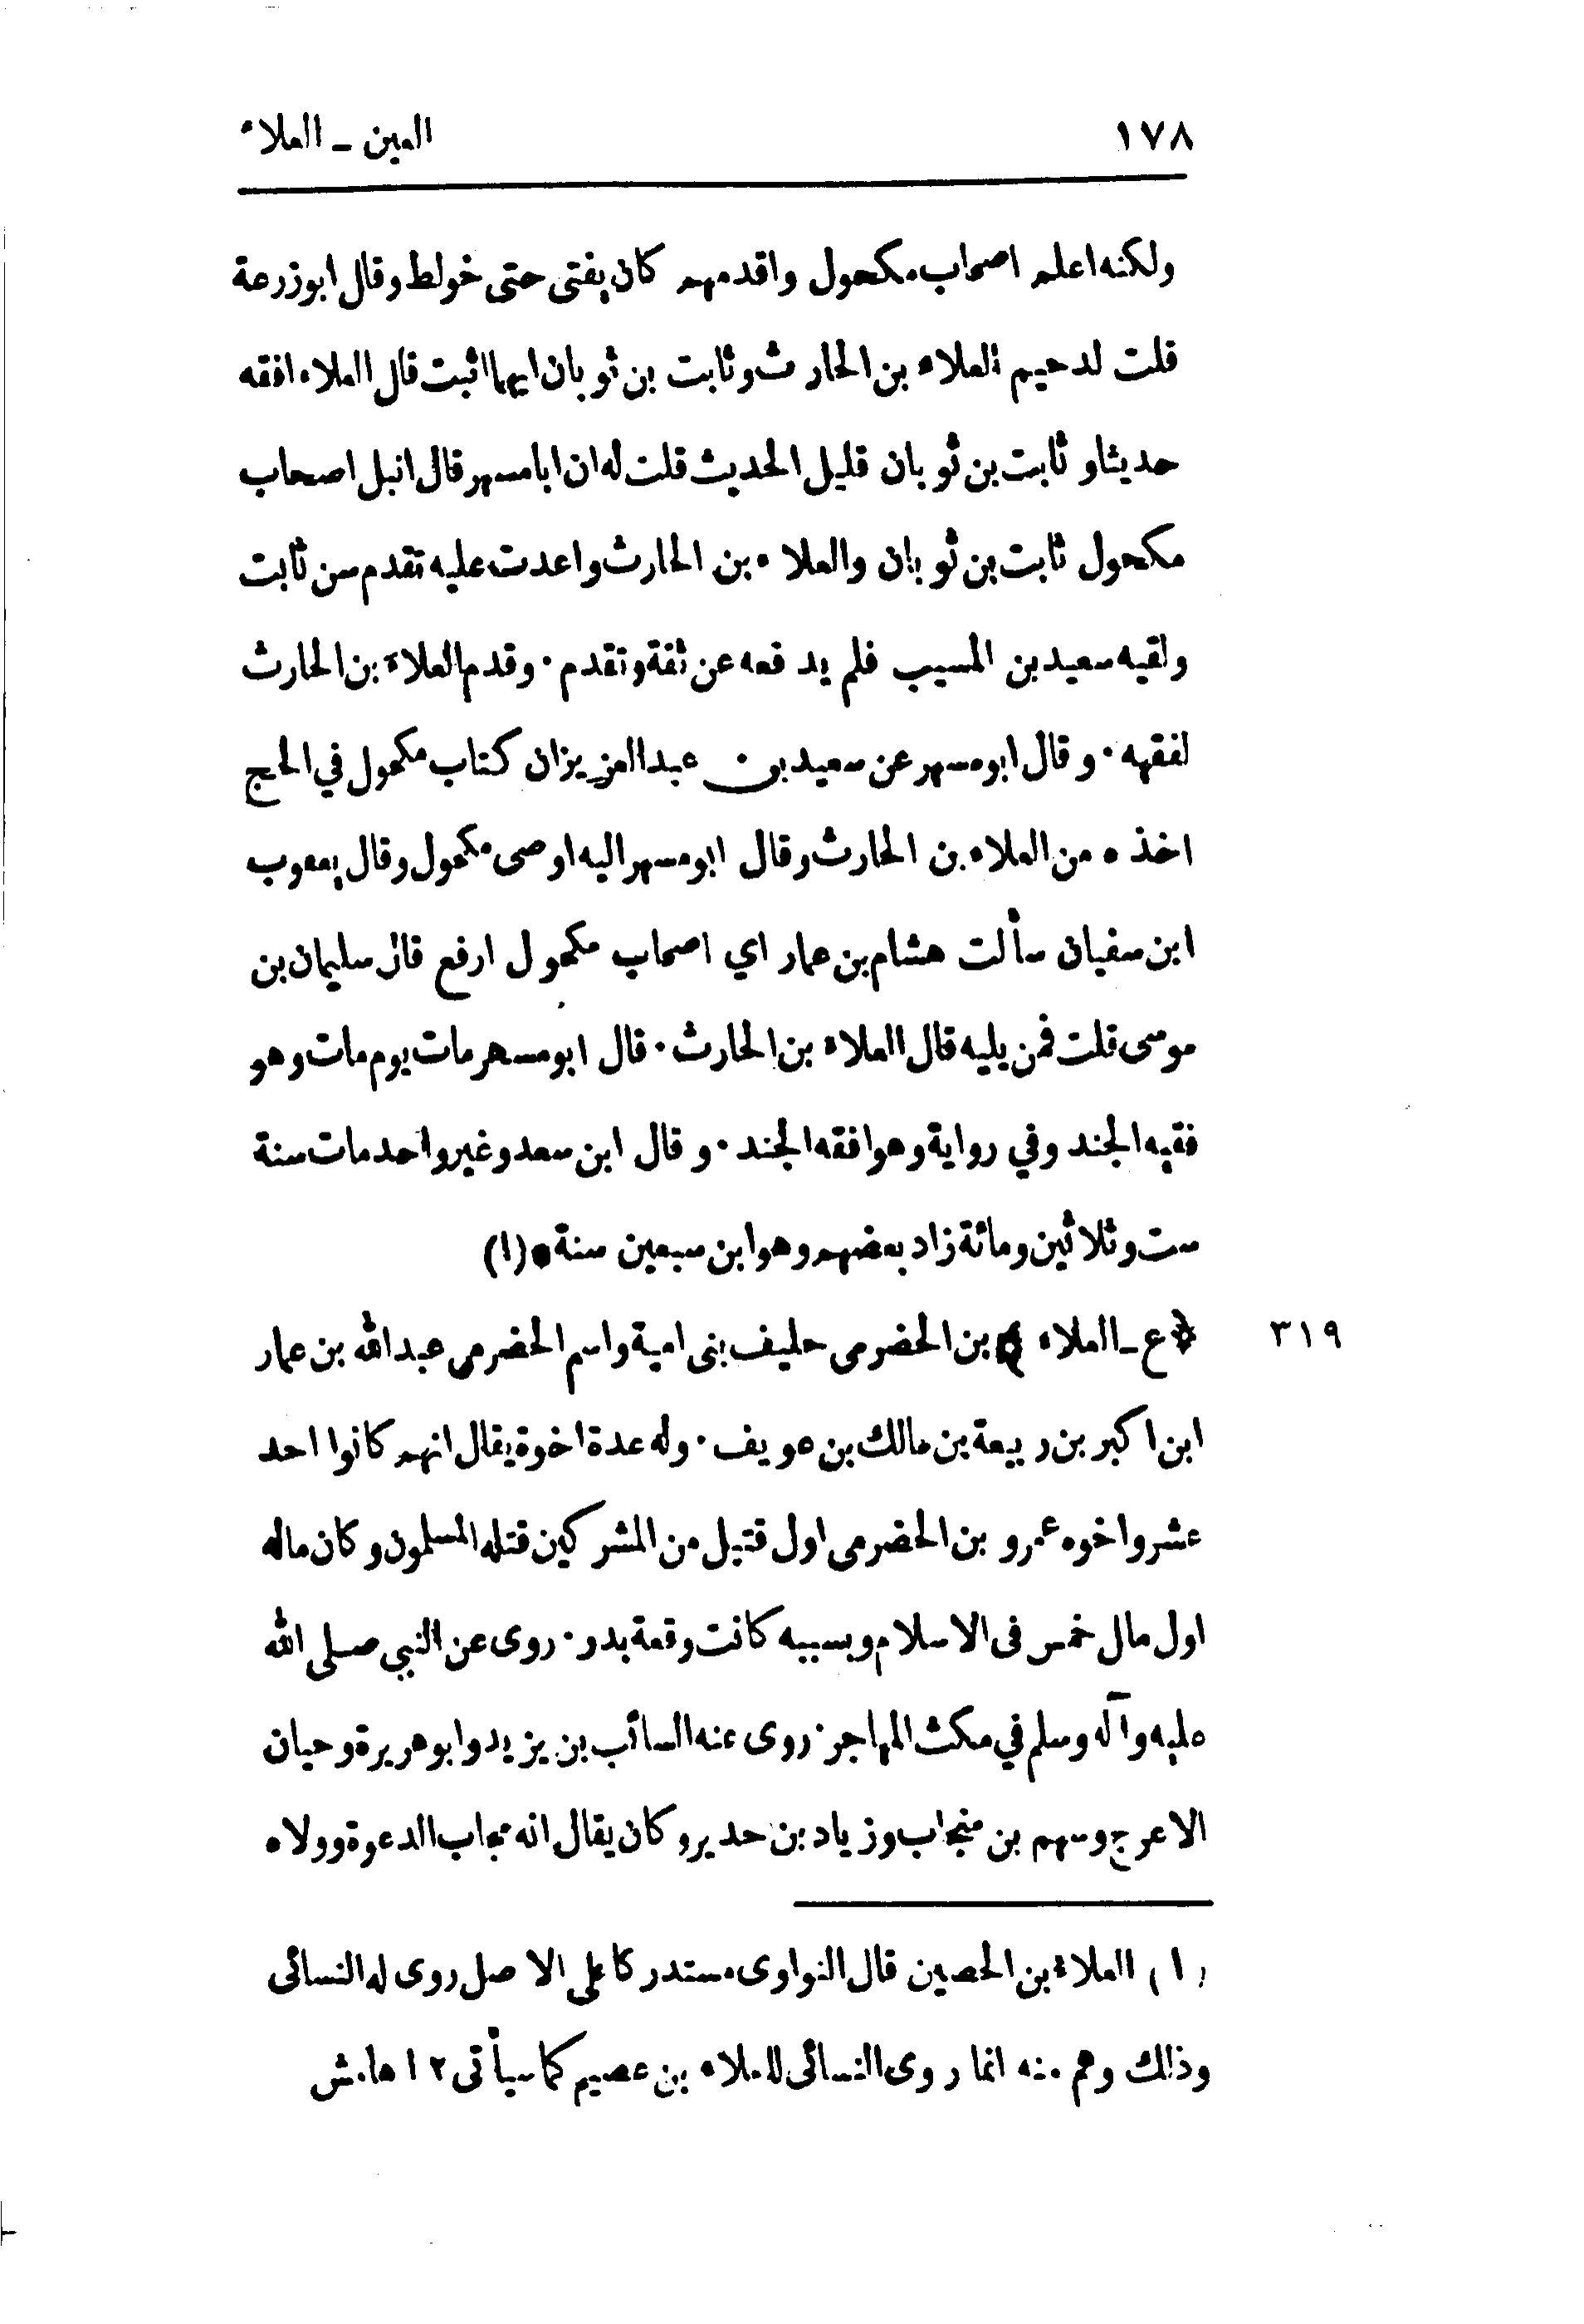 ١٧٨ العين - العلاء
ولكنه اعلم اصحاب مكحول واقدمهم كان يفتى حتى خولط وقال ابو زرعة
قلت لدحيم العلاء بن الحارث وثابت بن ثوبان ايهما اثبت قال العلاء افقه
حديثا وثابت بن ثوبان قليل الحديث قلت له ان ابا مسهر قال انبل اصحاب
مكحول ثابت بن ثوبان والعلاء بن الحارث واعدت عليه تقدم سن ثابت
ولقيه سعيد بن المسيب فلم يدفعه عن ثقة وتقدم . وقدم العلاء بن الحارث
لفقهه . وقال ابو مسهر عن سعيد بن عبد العزيز ان كتاب مكحول في الحج
اخذه من العلاء بن الحارث وقال ابو مسهر اليه اوصى مكحول وقال يعقوب
ابن سفيان سألت هشام بن عمار اي اصحاب مكحول ارفع قال سليمان بن
موسى قلت فمن يليه قال العلاء بن الحارث . قال ابو مسهر مات يوم مات وهو
فقيه الجند وفي رواية وهو افقه الجند . وقال ابن سعد وغير واحد مات سنة
ست وثلاثين ومائة زاد بعضهم وهو ابن سبعين سنة • (١)
٣١٩ ﴿ ع - العلاء ﴾ بن الحضرمى حليف بنى امية واسم الحضرمى عبد الله بن عمار
ابن اكبر بن ربيعة بن مالك بن عويف . وله عدة اخوة يقال انهم كانوا احد
عشر واخوه عمرو بن الحضرمى اول قتيل من المشركين قتله المسلمون وكان ماله
اول مال خمس فى الاسلام وبسببه كانت وقعة بدر . روى عن النبي صلى الله
عليه وآله وسلم في مكث المهاجر . روى عنه السائب بن يزيد وابو هريرة وحيان
الاعرج وسهم بن منجاب وزياد بن حدير وكان يقال انه مجاب الدعوة وولاه
(١) العلاء بن الحصين قال النواوى مستدركا على الاصل روى له النسائى
وذلك وهم منه انما روى النسائى للعلاء بن عصيم كما سيأتى ١٢ هامش